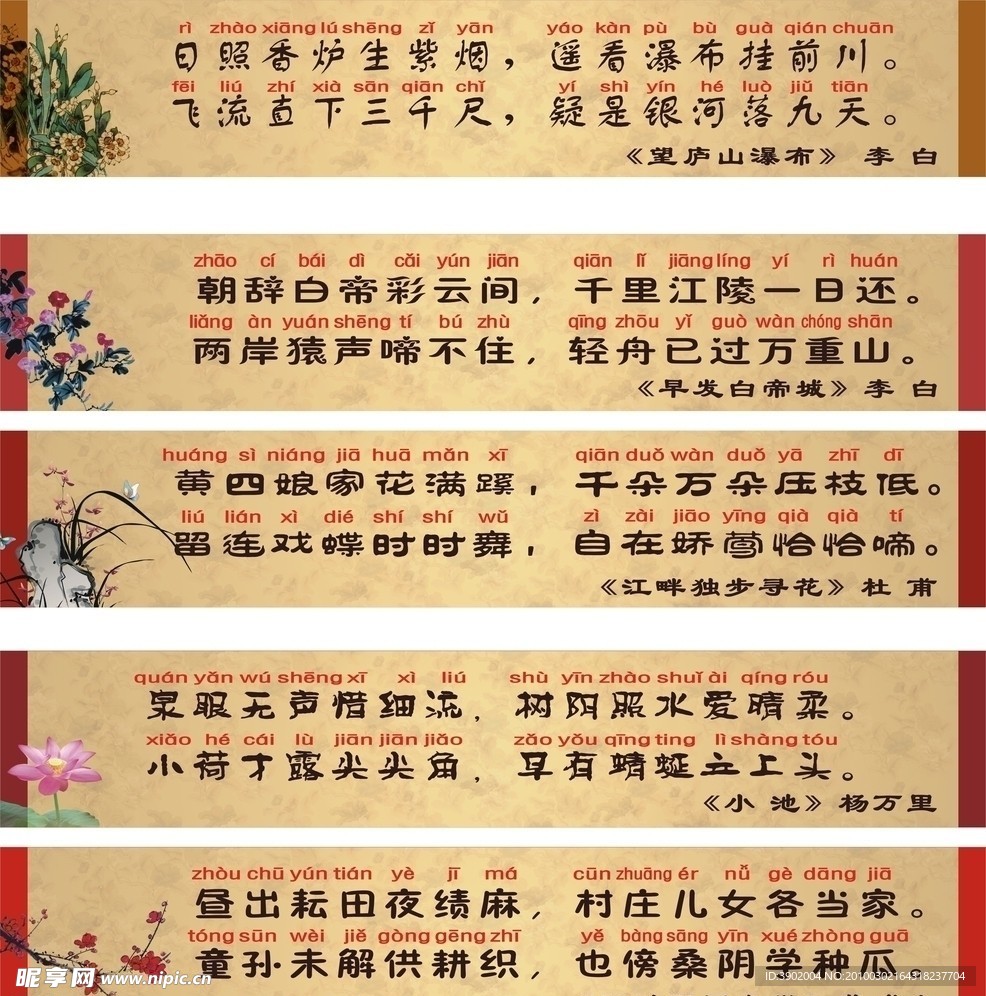 rì zhào xiāng lú shēng zǐ yān yáo kàn pù bù guà qián chuān
日照香炉生紫烟，遥看瀑布挂前川。
fēi liú zhí xià sān qiān chǐ yí shì yín hé luò jiǔ tiān
飞流直下三千尺，疑是银河落九天。
《望庐山瀑布》 李 白
zhāo cí bái dì cǎi yún jiān qiān lǐ jiāng líng yí rì huán
朝辞白帝彩云间，千里江陵一日还。
liǎng àn yuán shēng tí bú zhù qīng zhōu yǐ guò wàn chóng shān
两岸猿声啼不住，轻舟已过万重山。
《早发白帝城》 李 白
huáng sì niáng jiā huā mǎn xī qiān duǒ wàn duǒ yā zhī dī
黄四娘家花满蹊，千朵万朵压枝低。
liú lián xì dié shí shí wǔ zì zài jiāo yīng qià qià tí
留连戏蝶时时舞，自在娇莺恰恰啼。
《江畔独步寻花》 杜 甫
quán yǎn wú shēng xī xì liú shù yīn zhào shuǐ ài qíng róu
泉眼无声惜细流，树阴照水爱晴柔。
xiǎo hé cái lù jiān jiān jiǎo zǎo yǒu qīng ting lì shàng tóu
小荷才露尖尖角，早有蜻蜓立上头。
《小 池》 杨万里
zhòu chū yún tián yè jī má cūn zhuāng ér nǚ gè dāng jiā
昼出耘田夜绩麻，村庄儿女各当家。
tóng sūn wèi jiě gòng gēng zhī yě bàng sāng yīn xué zhòng guā
童孙未解供耕织，也傍桑阴学种瓜。
昵享网 www.nipic.cn
ID:3902004 NO:20100302164318237704